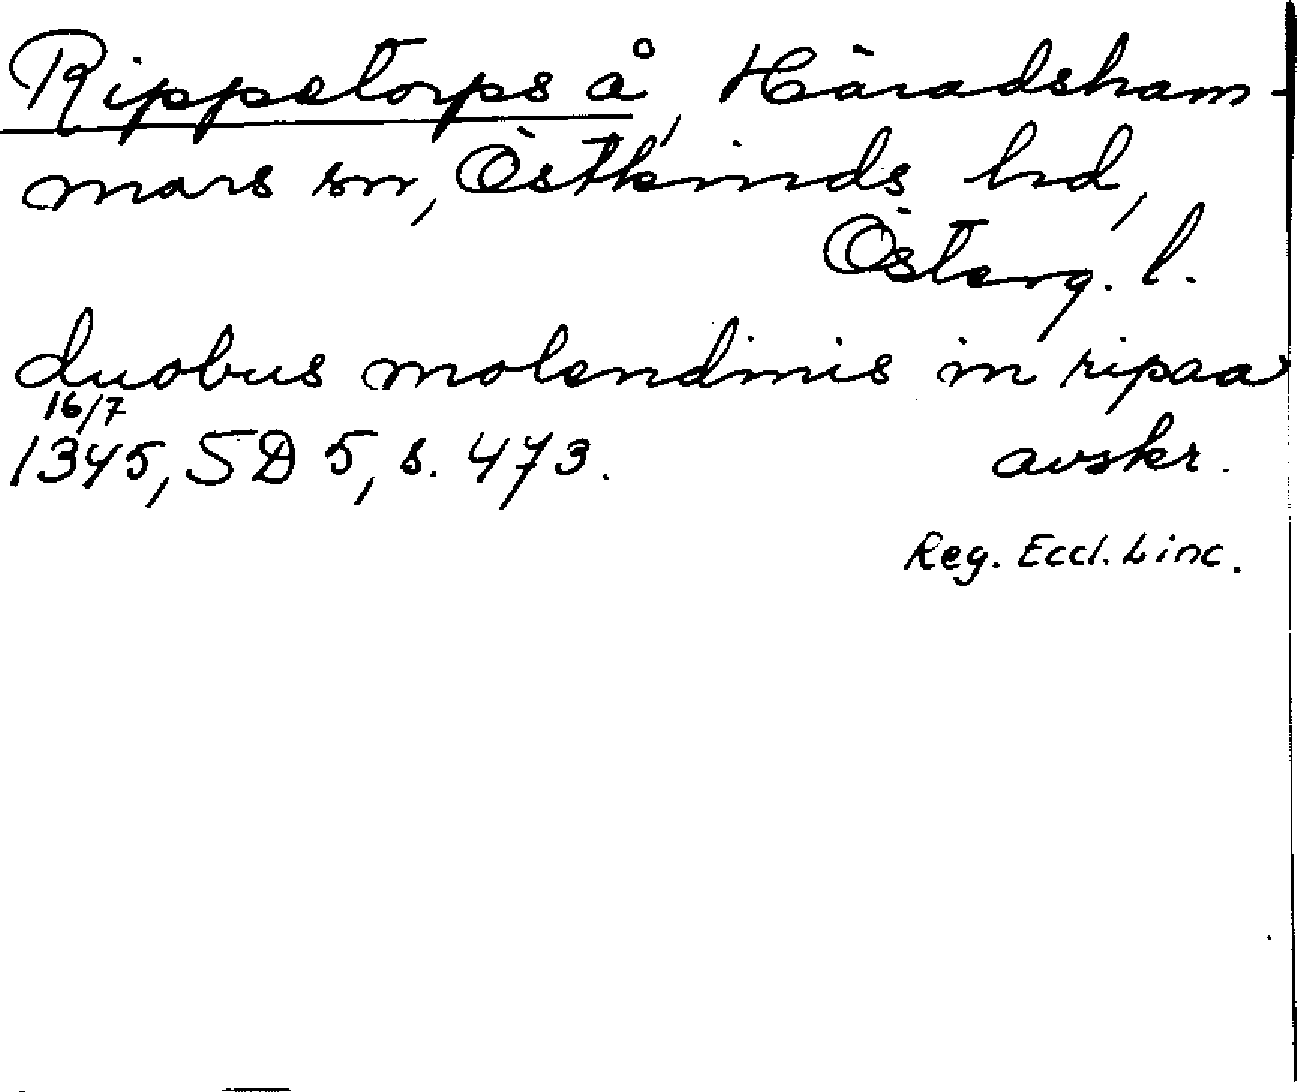 Rippetorps å, Häradsham-
mars sn, Östkinds hd,
Österg. l.
duobus molendinis in ripaa
16/7
1345, SD 5, s. 473. avskr.
Reg. Eccl. Linc.